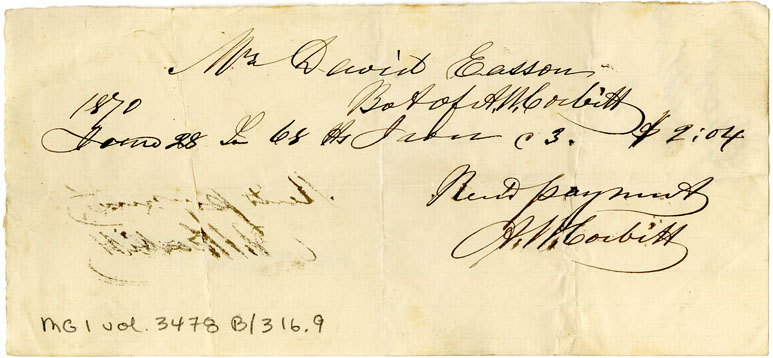 Mr David Easson
1870 Bot of A.W. Corbitt
June 28 To 68 lbs Iron c 3. $2:04
Recd payment
A.W. Corbitt
MG1 vol. 3478 B/316.9